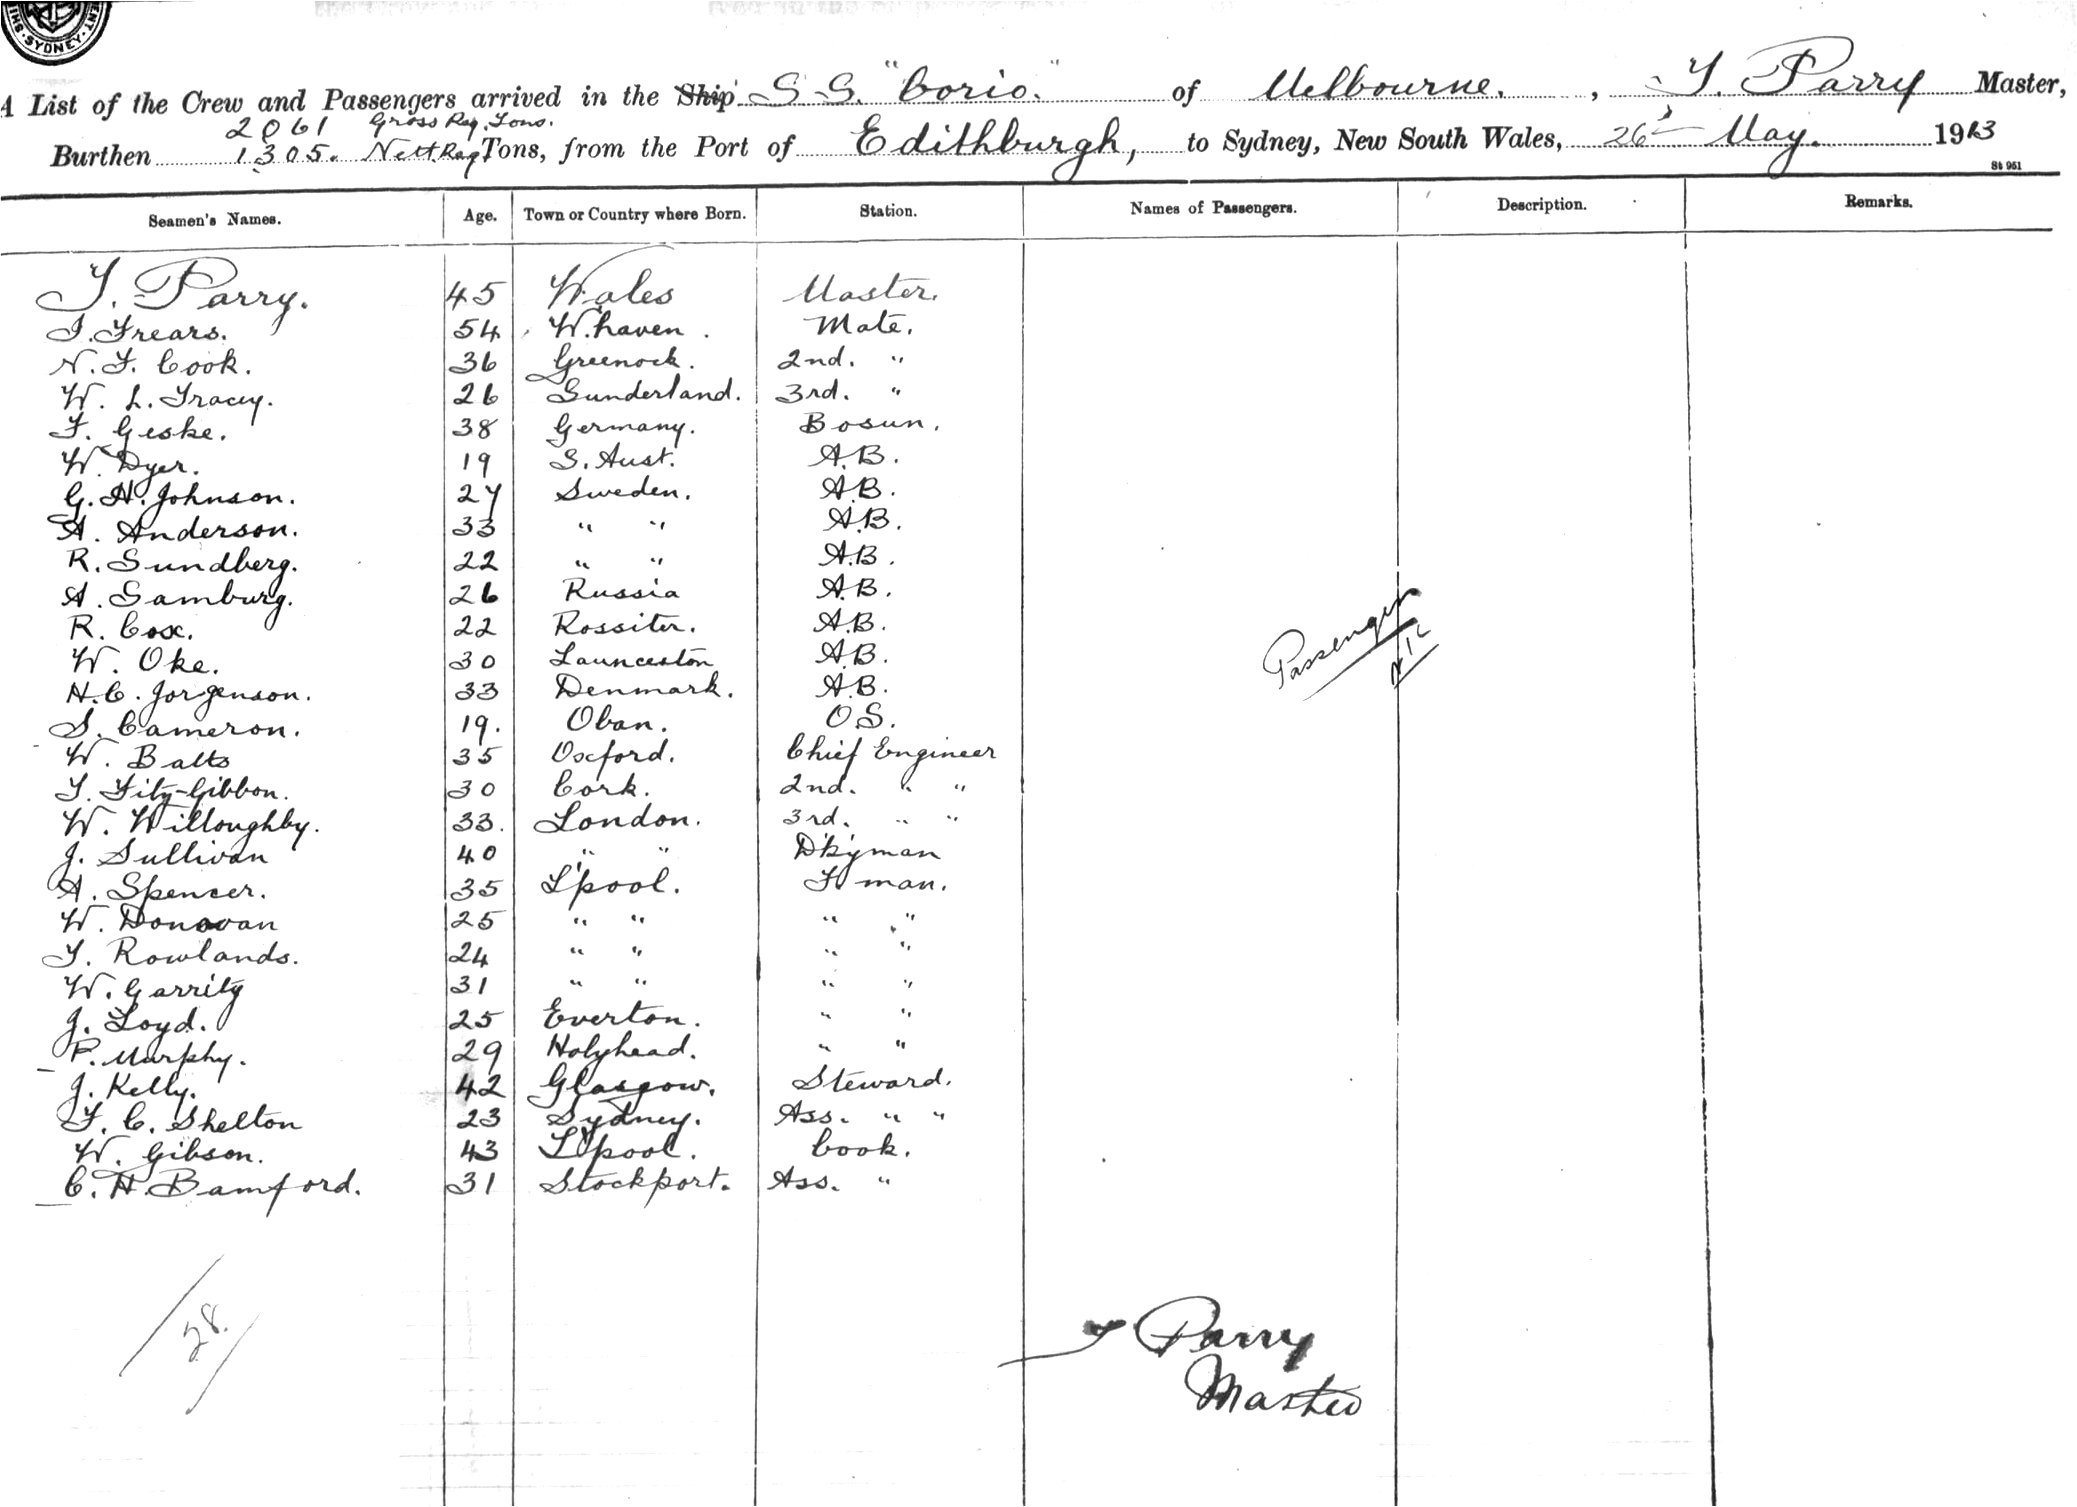 SYDNEY
A List of the Crew and Passengers arrived in the Ship S.S. "Corio." of Melbourne, T. Parry Master,
2061 Gross Reg. Tons.
Burthen 1305. Nett Reg Tons, from the Port of Edithburgh, to Sydney, New South Wales, 26th May. 1913
St 951
Seamen's Names. Age. Town or Country where Born. Station. Names of Passengers. Description. Remarks.
T. Parry. 45 Wales Master.
I. Frears. 54 W.haven. Mate.
N. F. Cook. 36 Greenock. 2nd. "
W. L. Tracey. 26 Sunderland. 3rd. "
F. Geske. 38 Germany. Bosun.
W. Dyer. 19 S. Aust. A.B.
G. H. Johnson. 27 Sweden. A.B.
A. Anderson. 33 " " A.B.
R. Sundberg. 22 " " A.B.
A. Samburg. 26 Russia A.B.
R. Cox. 22 Rossiter. A.B.
W. Oke. 30 Launceston A.B.
H. C. Jorgenson. 33 Denmark. A.B.
S. Cameron. 19. Oban. O.S.
W. Batts 35 Oxford. Chief Engineer
T. Fitz-Gibbon. 30 Cork. 2nd. " "
W. Willoughby. 33. London. 3rd. " "
J. Sullivan 40 " " D'kyman
A. Spencer. 35 L'pool. F'man.
W. Donovan 25 " " " "
T. Rowlands. 24 " " " "
W. Garrity 31 " " " "
J. Loyd. 25 Everton. " "
P. Murphy. 29 Holyhead. " "
J. Kelly. 42 Glasgow. Steward.
F. C. Shelton 23 Sydney. Ass. " "
W. Gibson. 43 L'pool. Cook.
C. H. Bamford. 31 Stockport. Ass. "
Passengers
Nil
28.
T Parry
Master